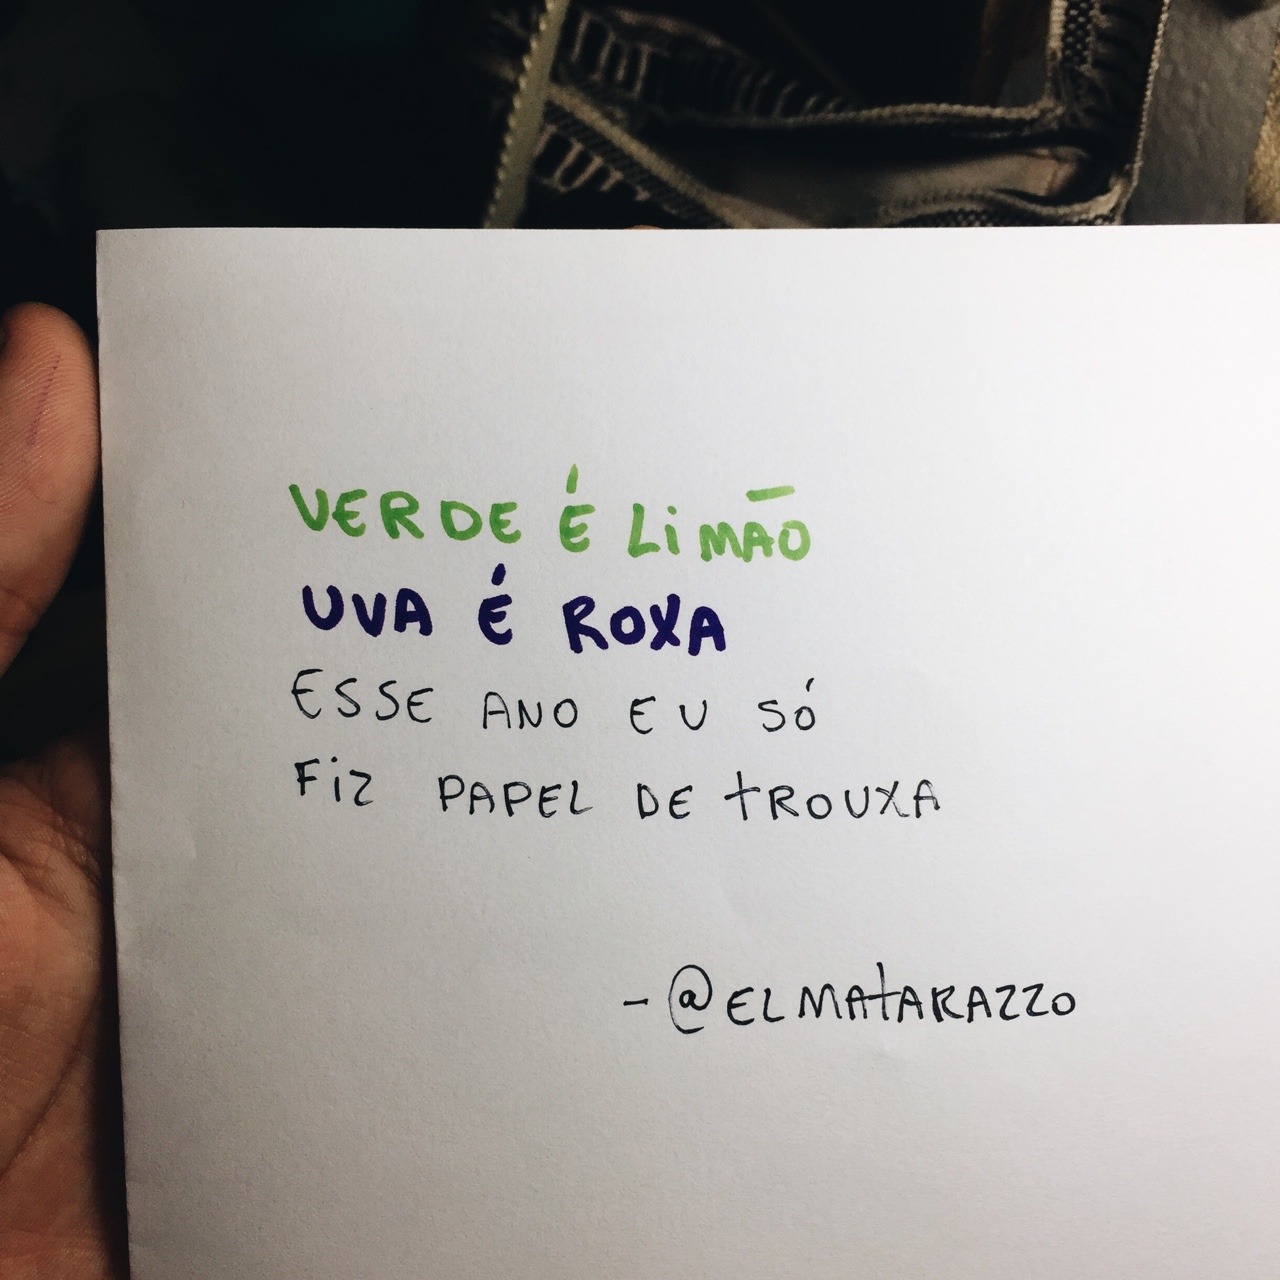 VERDE É LiMÃO
UVA É ROXA
ESSE ANO EU SÓ
FiZ PAPEL DE tROUXA
- @ELMAtARAZZO